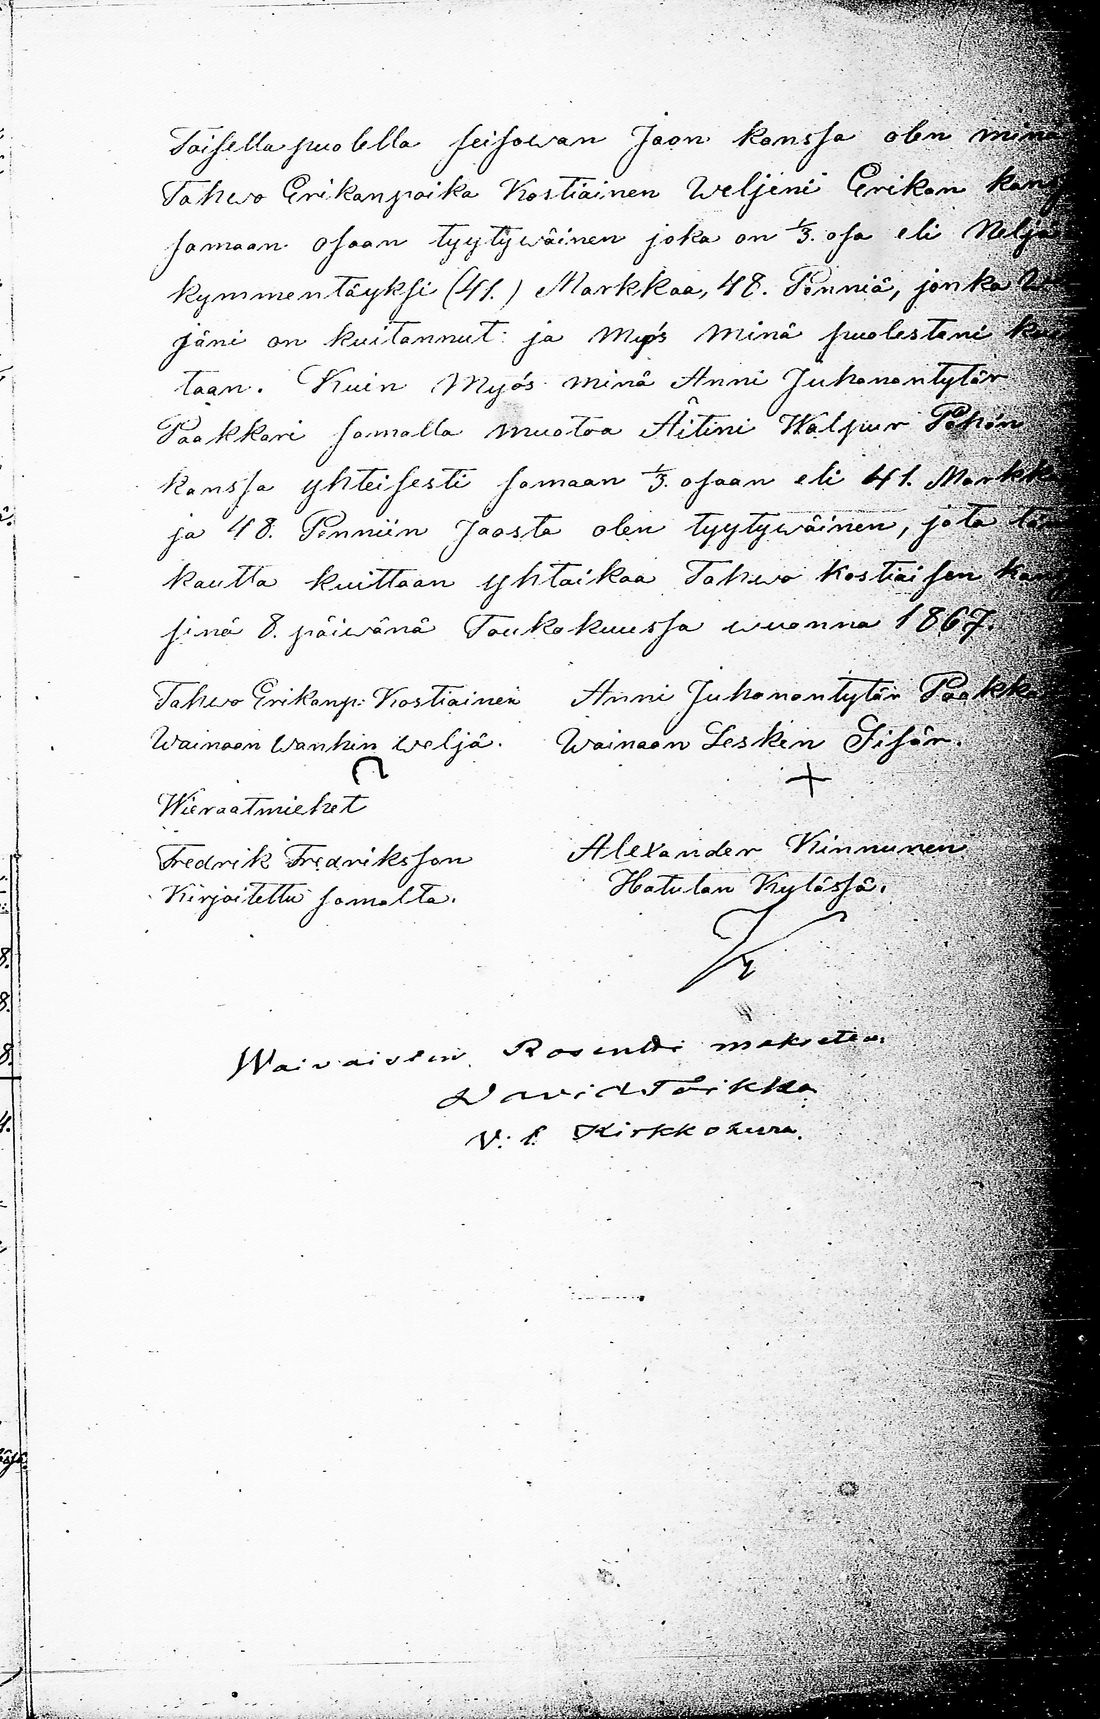 Toisella puolella seisowan Jaon kanssa olen minä
Tahwo Erikanpoika Kostiainen Weljeni Erikan kans
samaan osaan tyytywäinen joka on 1/3. osa eli Neljä
kymmentäyksi (41.) Markkaa, 48. Penniä, jonka
jäni on kuitannut: ja Myös Minä puolesteni kui
taan. Kuin Myös minä Anni Juhanantytär
Paakkari samalla muotoa Äitini Walpur Pöhön
kanssa yhteisesti samaan 1/3. osaan eli 41. Markka
ja 48. Penniin Jaosta olen tyytywäinen, jota tä
kautta kuittaan yhtaikaa Tahwo Kostiaisen kans
sinä 8. päiwänä Toukokuussa wuonna 1867.
Tahwo Erikanp: Kostiainen Anni Juhanantytär Paakka
Wainaan Wanhin Weljä. Wainaan Lesken Sisär.
Wieraatmiehet
Fredrik Fredriksson Alexander Kinnunen
Kirjoitettu samalta. Hatulan Kylässä.
Waivaisten Rosentti maksettu.
David Toikka
V: t. Kirkkoherra.